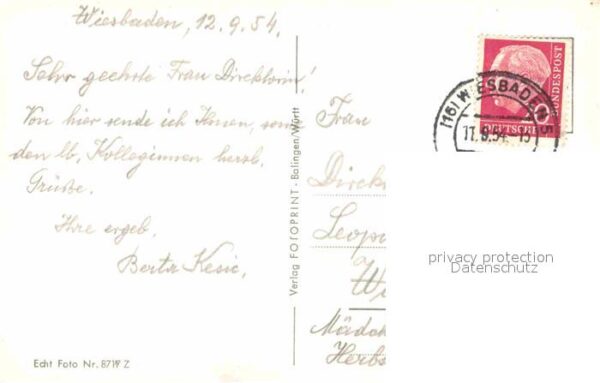 Wiesbaden, 12.9.54.
Sehr geehrte Frau Direktorin!
Von hier sende ich Ihnen, sow
den lb. Kolleginnen herzl.
Grüße.
Ihre ergeb.
Berta Kesic,
Verlag FOTOPRINT - Balingen/Württ
Echt Foto Nr. 8719 Z
Frau
Direk
Leop
Wi
Mädch
Herbs
DEUTSCHE BUNDESPOST
(16) WIESBADEN 5
11.9.54.-15
privacy protection
Datenschutz